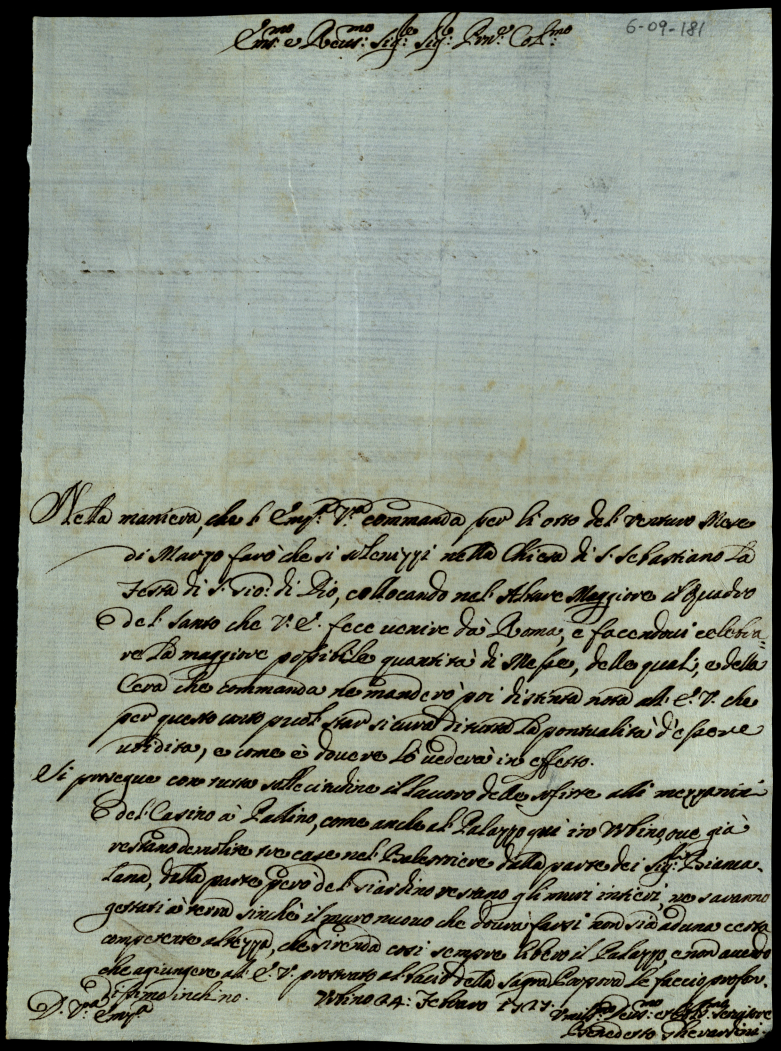 6-09-181
Em.mo e Reu.mo Sig.re Sig.re Pron.e Col.mo
Nella maniera, che l'Em.a V.ra commanda per li otto del venturo Mese
di Marzo farò che si solenizzi nella Chiesa di S. Sebastiano la
Festa di S. Gio: di Dio, collocando nel Altare Maggiore il Quadro
del Santo che V. E. fece uenire da Roma, e facendoui celebra=
re la maggiore possibile quantità di Messe, delle quali, e della
Cera che commanda ne manderò poi distinta nota all'E. V. che
per questo conto puol star sicura di tutta la pontualità d'essere
ubidita, e come è douere lo uederà in effetto.
Si prosegue con tutta sollecitudine il lauoro delle soffitte alli mezzanini
del Casino à Pallino, come anche al Palazzo qui in Urbino, oue già
restano demolite tre case nel Balestriere dalla parte dei Sig.ri Biama=
lana, dalla parte però del Giardino restano gli muri intieri, ne saranno
gettati à terra sinchè il muro nuouo che dourà farsi non sia ad una certa
competente altezza, che si renda così sempre libero il Palazzo, e non auendo
che agiungere all'E. V. prostrato al bacio della Sagra Porpora le faccio profon=
dissimo inchino. Urbino 24: Febraro 1727
D. V.ra Em.a
Benedetto Gherardini